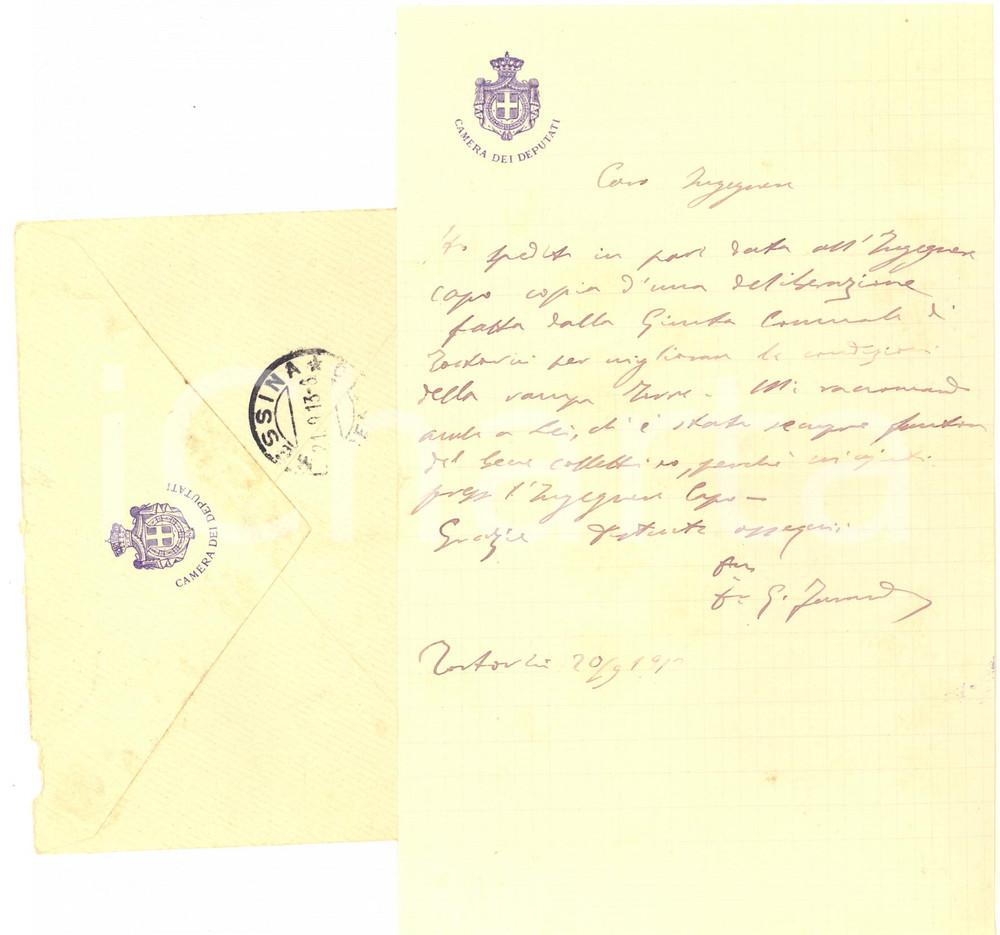 CAMERA DEI DEPUTATI
Caro Ingegnere
Ho spedito in pari data all'Ingegnere
capo copia d'una deliberazione
fatta dalla Giunta Comunale di
Tortorici per migliorare le condizioni
della rampa Torre. Mi raccomando
anche a Lei, ch'è stato sempre fautore
del bene collettivo, perchè mi ajuti
presso l'Ingegnere Capo —
Grazie distinti ossequi
G.
Tortorici 20/9 191
MESSINA
21.9.13-8
CAMERA DEI DEPUTATI